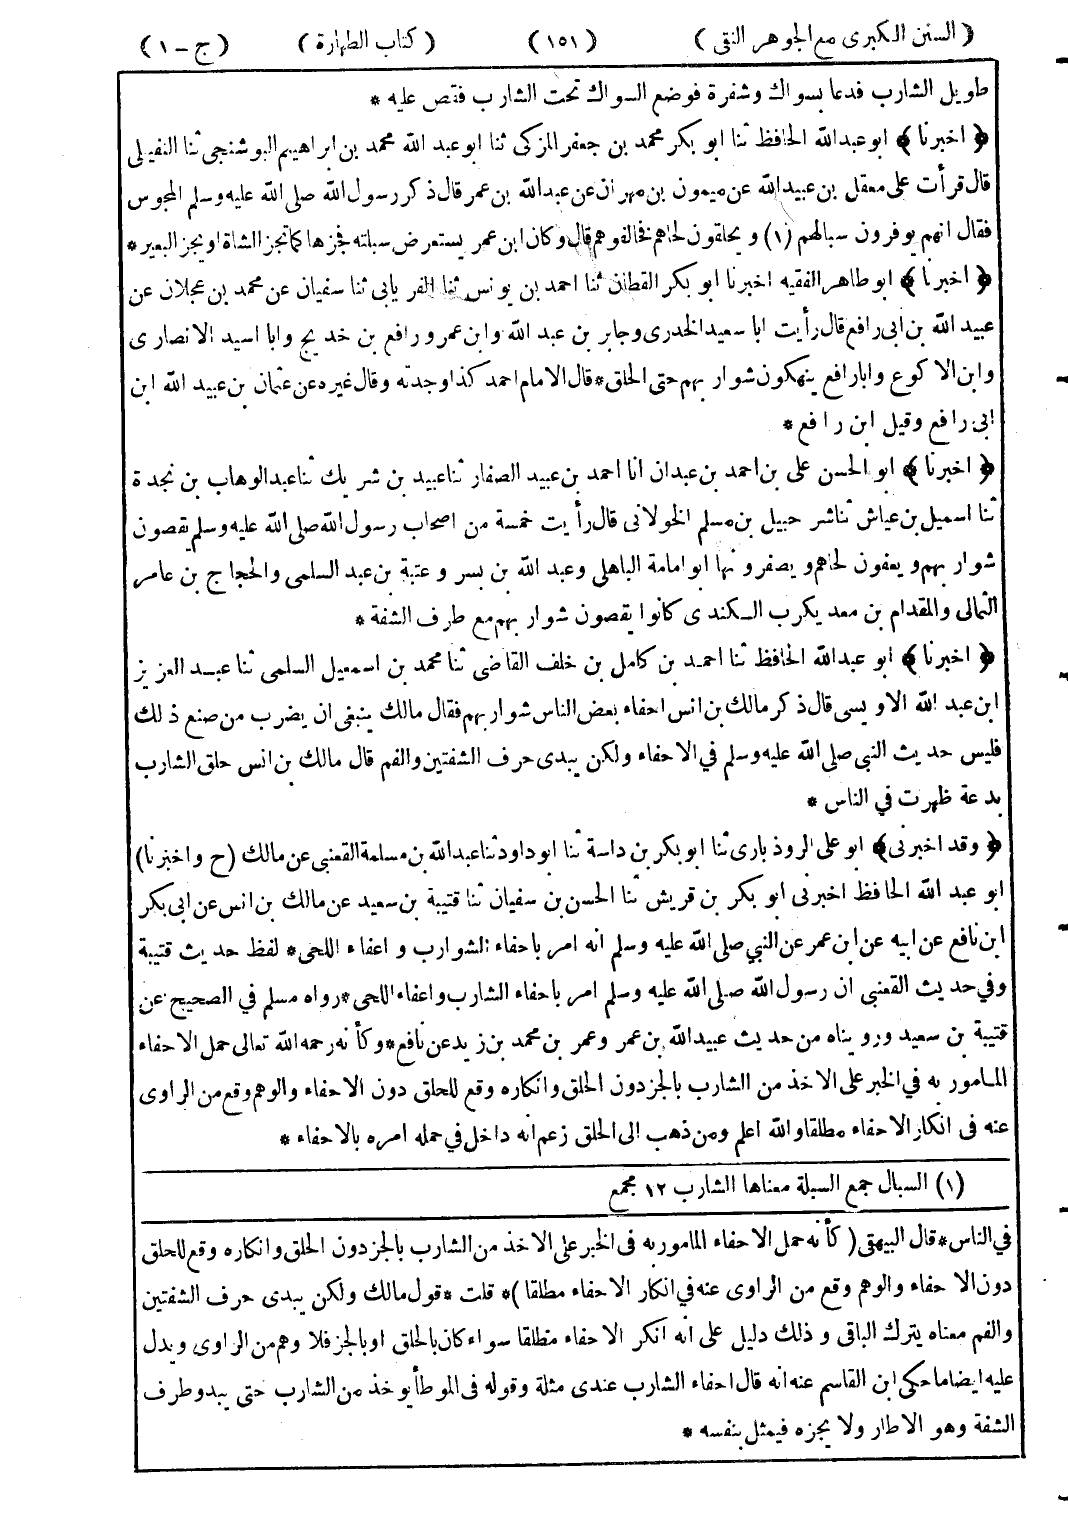 ( السنن الكبرى مع الجوهر النقى ) ( ١٥١ ) ( كتاب الطهارة ) ( ج – ١ )
طويل الشارب فدعا بسواك وشفرة فوضع السواك تحت الشارب فقص عليه *
﴿ اخبرنا ﴾ ابو عبد الله الحافظ ثنا ابو بكر محمد بن جعفر المزكى ثنا ابو عبد الله محمد بن ابراهيم البوشنجى ثنا النفيلى
قال قرأت على معقل بن عبيد الله عن ميمون بن مهران عن عبد الله بن عمر قال ذكر رسول الله صلى الله عليه وسلم المجوس
فقال انهم يوفرون سبالهم (١) و يحلقون لحاهم فخالفوهم قال وكان ابن عمر يستعرض سبلته فيجزها كما تجز الشاة او يجز البعير *
﴿ اخبرنا ﴾ ابو طاهر الفقيه اخبرنا ابو بكر القطان ثنا احمد بن يونس ثنا الفريابى ثنا سفيان عن محمد بن عجلان عن
عبيد الله بن ابى رافع قال رأيت ابا سعيد الخدرى وجابر بن عبد الله وابن عمر ورافع بن خديج وابا اسيد الانصارى
وابن الاكوع وابا رافع ينهكون شواربهم حتى الحلق * قال الامام احمد كذا وجدته وقال غيره عن عثمان بن عبيد الله ابن
ابى رافع وقيل ابن رافع *
﴿ اخبرنا ﴾ ابو الحسن على بن احمد بن عبدان انا احمد بن عبيد الصفار ثنا عبيد بن شريك ثنا عبد الوهاب بن نجدة
ثنا اسمعيل بن عياش ثنا شرحبيل بن مسلم الخولانى قال رأيت خمسة من اصحاب رسول الله صلى الله عليه وسلم يقصون
شواربهم و يعفون لحاهم و يصفرونها ابو امامة الباهلى وعبد الله بن بسر وعتبة بن عبد السلمى والحجاج بن عامر
الثمالى والمقدام بن معد يكرب الكندى كانوا يقصون شواربهم مع طرف الشفة *
﴿ اخبرنا ﴾ ابو عبد الله الحافظ ثنا احمد بن كامل بن خلف القاضى ثنا محمد بن اسمعيل السلمى ثنا عبد العزيز
ابن عبد الله الاويسى قال ذكر مالك بن انس احفاء بعض الناس شواربهم فقال مالك ينبغى ان يضرب من صنع ذلك
فليس حديث النبى صلى الله عليه وسلم في الاحفاء ولكن يبدى حرف الشفتين والفم قال مالك بن انس حلق الشارب
بدعة ظهرت في الناس *
﴿ وقد اخبرنى ﴾ ابو على الروذبارى ثنا ابو بكر بن داسة ثنا ابو داود ثنا عبد الله بن مسلمة القعنبى عن مالك (ح واخبرنا)
ابو عبد الله الحافظ اخبرنى ابو بكر بن قريش ثنا الحسن بن سفيان ثنا قتيبة بن سعيد عن مالك بن انس عن ابى بكر
ابن نافع عن ابيه عن ابن عمر عن النبي صلى الله عليه وسلم انه امر باحفاء الشوارب و اعفاء اللحى * لفظ حديث قتيبة
وفي حديث القعنبى ان رسول الله صلى الله عليه وسلم امر باحفاء الشارب واعفاء اللحى * رواه مسلم في الصحيح عن
قتيبة بن سعيد ورويناه من حديث عبيد الله بن عمر وعمر بن محمد بن زيد عن نافع * وكأنه رحمه الله تعالى حمل الاحفاء
المامور به في الخبر على الاخذ من الشارب بالجز دون الحلق وانكاره وقع للحلق دون الاحفاء والوهم وقع من الراوى
عنه فى انكار الاحفاء مطلقا والله اعلم ومن ذهب الى الحلق زعم انه داخل في حمله امره بالاحفاء *
(١) السبال جمع السبلة معناها الشارب ١٢ مجمع
في الناس * قال البيهقى ( كأنه حمل الاحفاء المامور به فى الخبر على الاخذ من الشارب بالجز دون الحلق وانكاره وقع للحلق
دون الاحفاء والوهم وقع من الراوى عنه في انكار الاحفاء مطلقا )* قلت * قول مالك ولكن يبدى حرف الشفتين
والفم معناه يترك الباقى و ذلك دليل على انه انكر الاحفاء مطلقا سواء كان بالحلق او بالجز فلا وهم من الراوى ويدل
عليه ايضا ما حكى ابن القاسم عنه انه قال احفاء الشارب عندى مثلة وقوله فى الموطأ يوخذ من الشارب حتى يبدو طرف
الشفة وهو الاطار ولا يجزه فيمثل بنفسه *